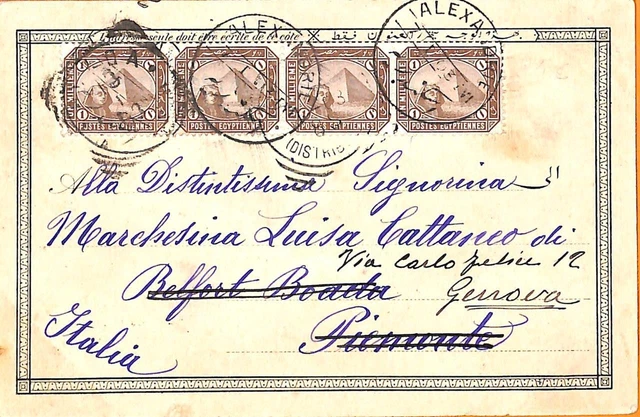 L'adresse seule doit être écrite de ce côté
POSTES EGYPTIENNES POSTES EGYPTIENNES POSTES EGYPTIENNES POSTES EGYPTIENNES
ALEXANDRIE
(DISTRIB
Alla Distintissima Signorina
Marchesina Luisa Cattaneo di
Via Carlo Felice 12
Belfort Boada
Genova
Italia
Piemonte